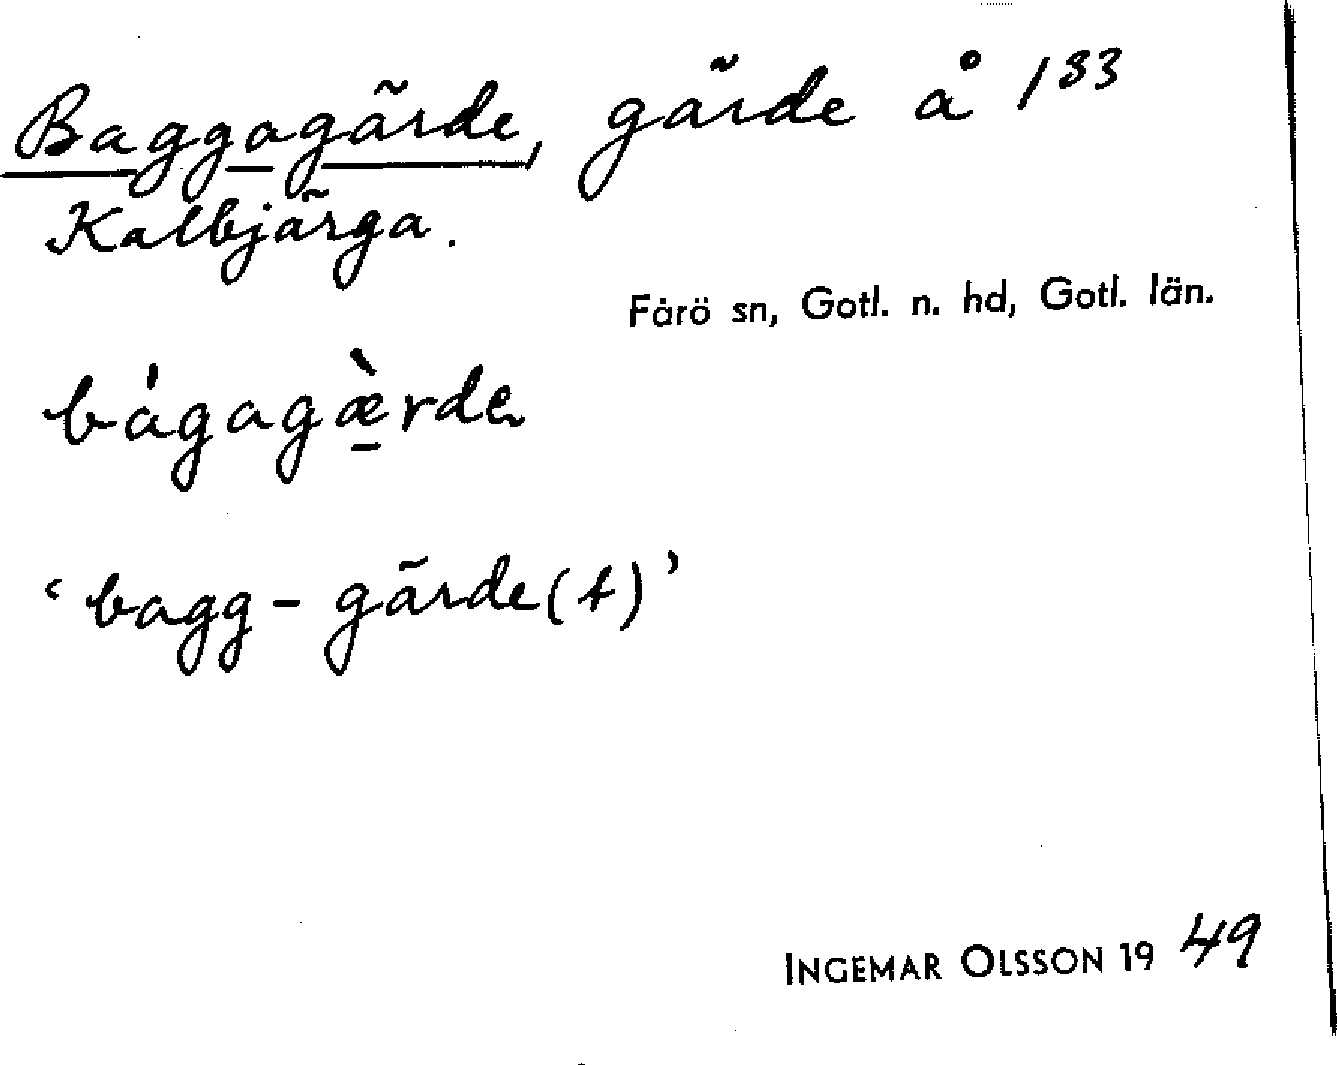 Baggagärde, gärde å 1³³
Kalbjärga.
Fårö sn, Gotl. n. hd, Gotl. län.
bágagæ̱̀rde
‘bagg-gärde(t)’
INGEMAR OLSSON 1949